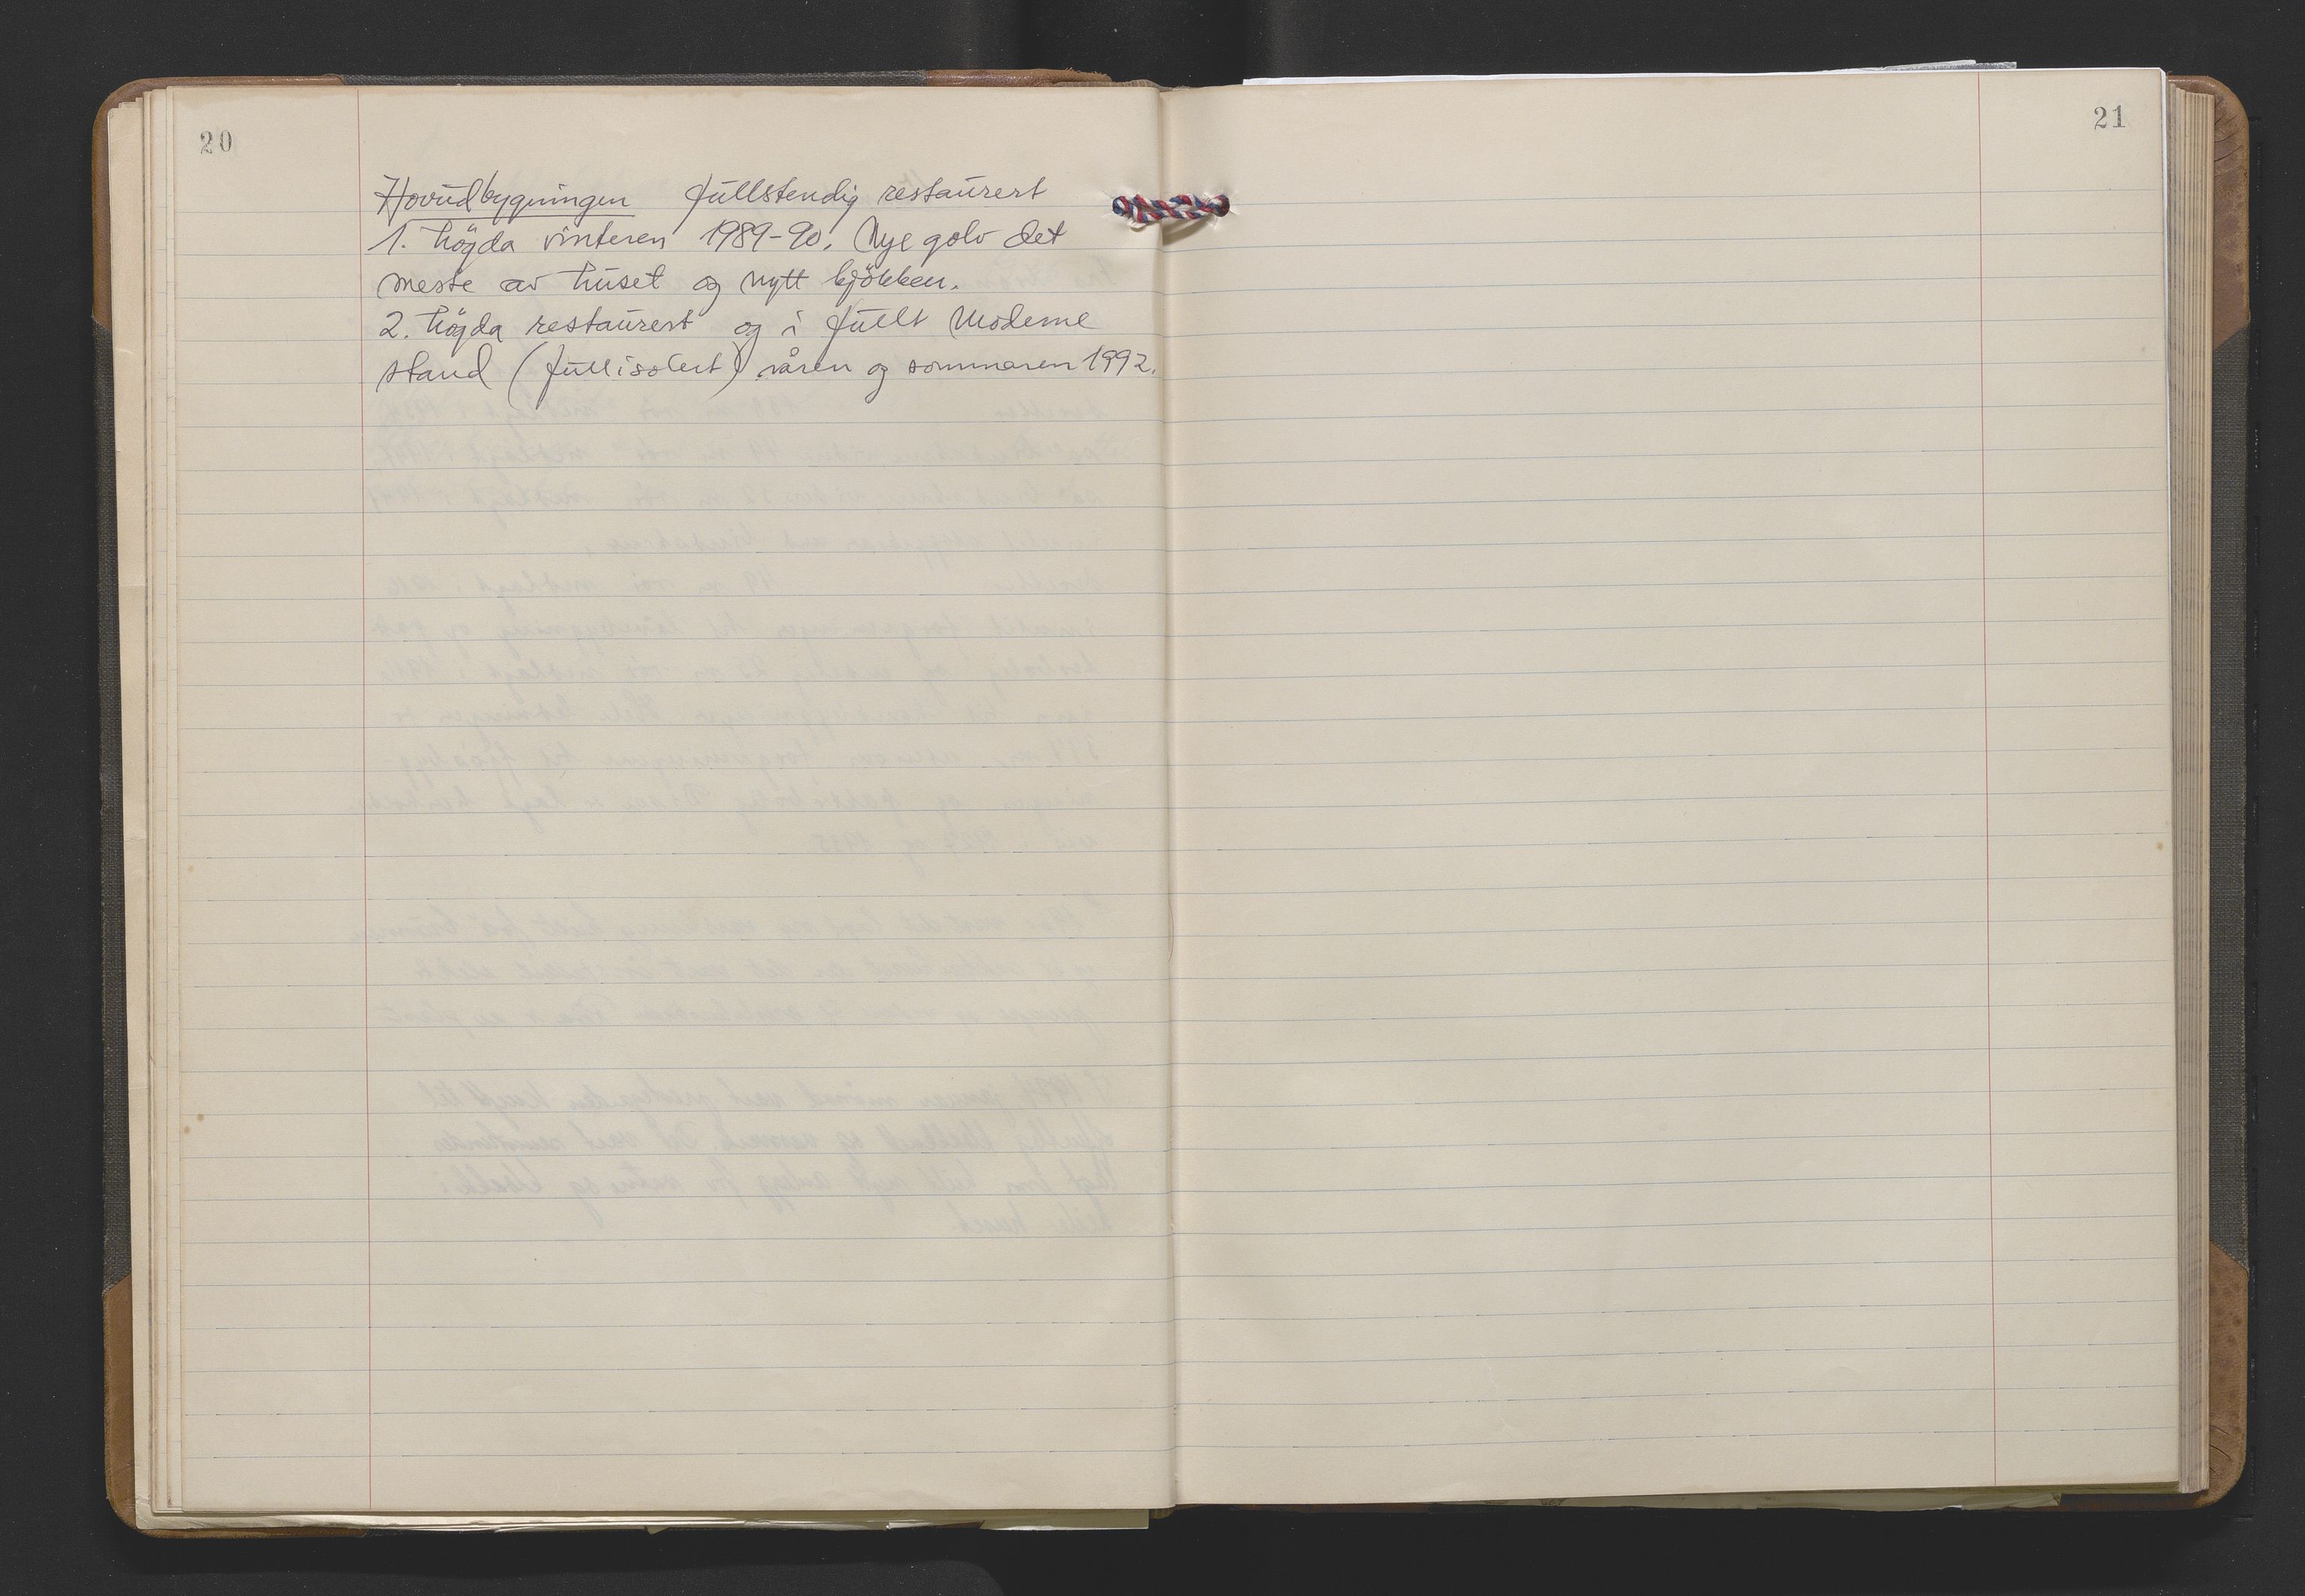 20
Hovudbygningen fullstendig restaurert
1. högda vinteren 1989-90. Nye golv det
meste av huset og nytt kjökken.
2. högda restaurert og i fullt moderne
stand (fullisolert) våren og sommaren 1992.
21